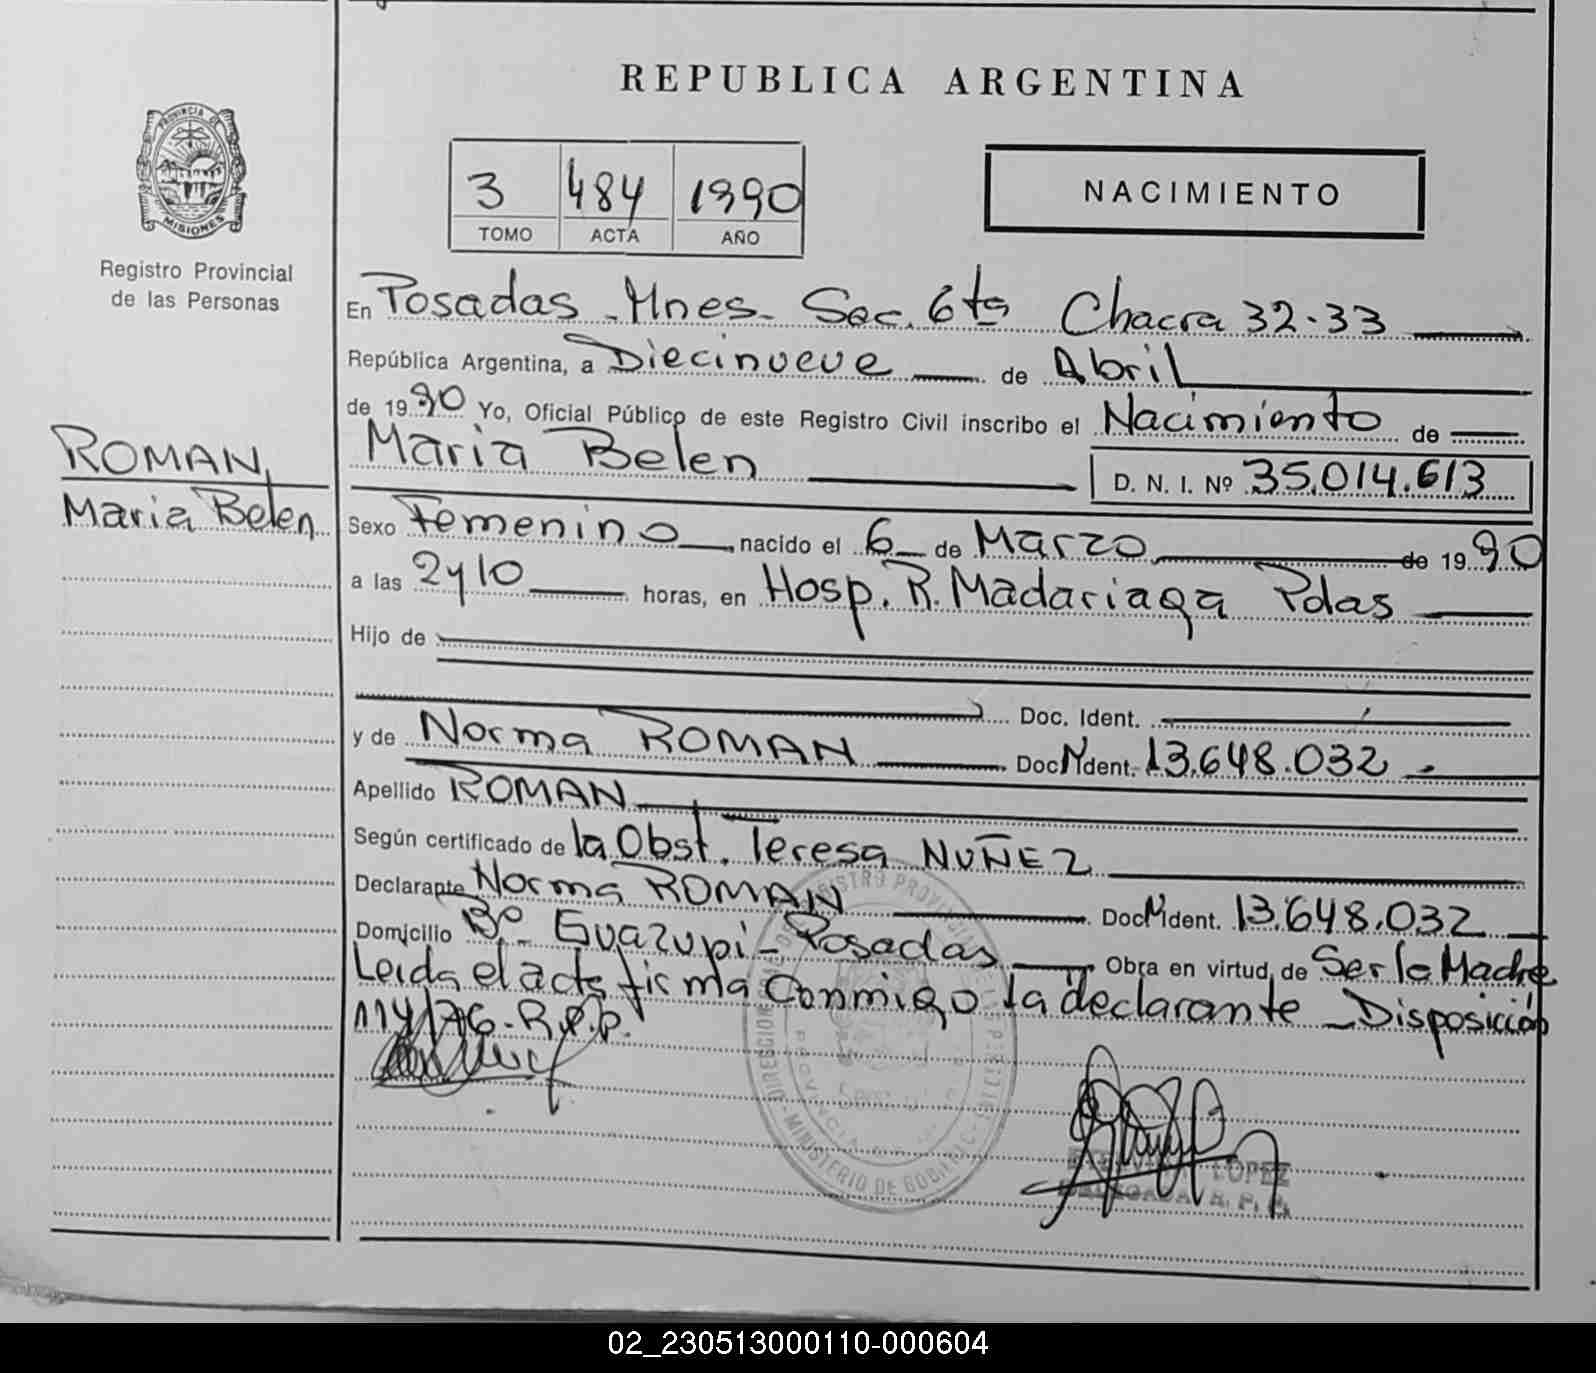 REPUBLICA ARGENTINA
PROVINCIA DE
MISIONES
Registro Provincial
de las Personas
3 484 1990
TOMO ACTA AÑO
NACIMIENTO
En Posadas - Mnes - Sec. 6ta Chacra 32-33
República Argentina, a Diecinueve de Abril
de 1990 Yo, Oficial Público de este Registro Civil inscribo el Nacimiento de
ROMAN,
Maria Belen
Maria Belen
D. N. I. Nº 35.014.613
Sexo Femenino nacido el 6 de Marzo de 1990
a las 2y10 horas, en Hosp. R. Madariaga Pdas
Hijo de
Doc. Ident.
y de Norma ROMAN Doc. Ident. 13.648.032
Apellido ROMAN
Según certificado de la Obst. Teresa NUÑEZ
Declarante Norma ROMAN Doc. Ident. 13.648.032
Domicilio Bº Guazupi - Posadas Obra en virtud de Ser la Madre
Leida el acta firma conmigo la declarante - Disposición
114/76 - R.P.P.
LOPEZ
DELEGADA R. P. P.
02_230513000110-000604